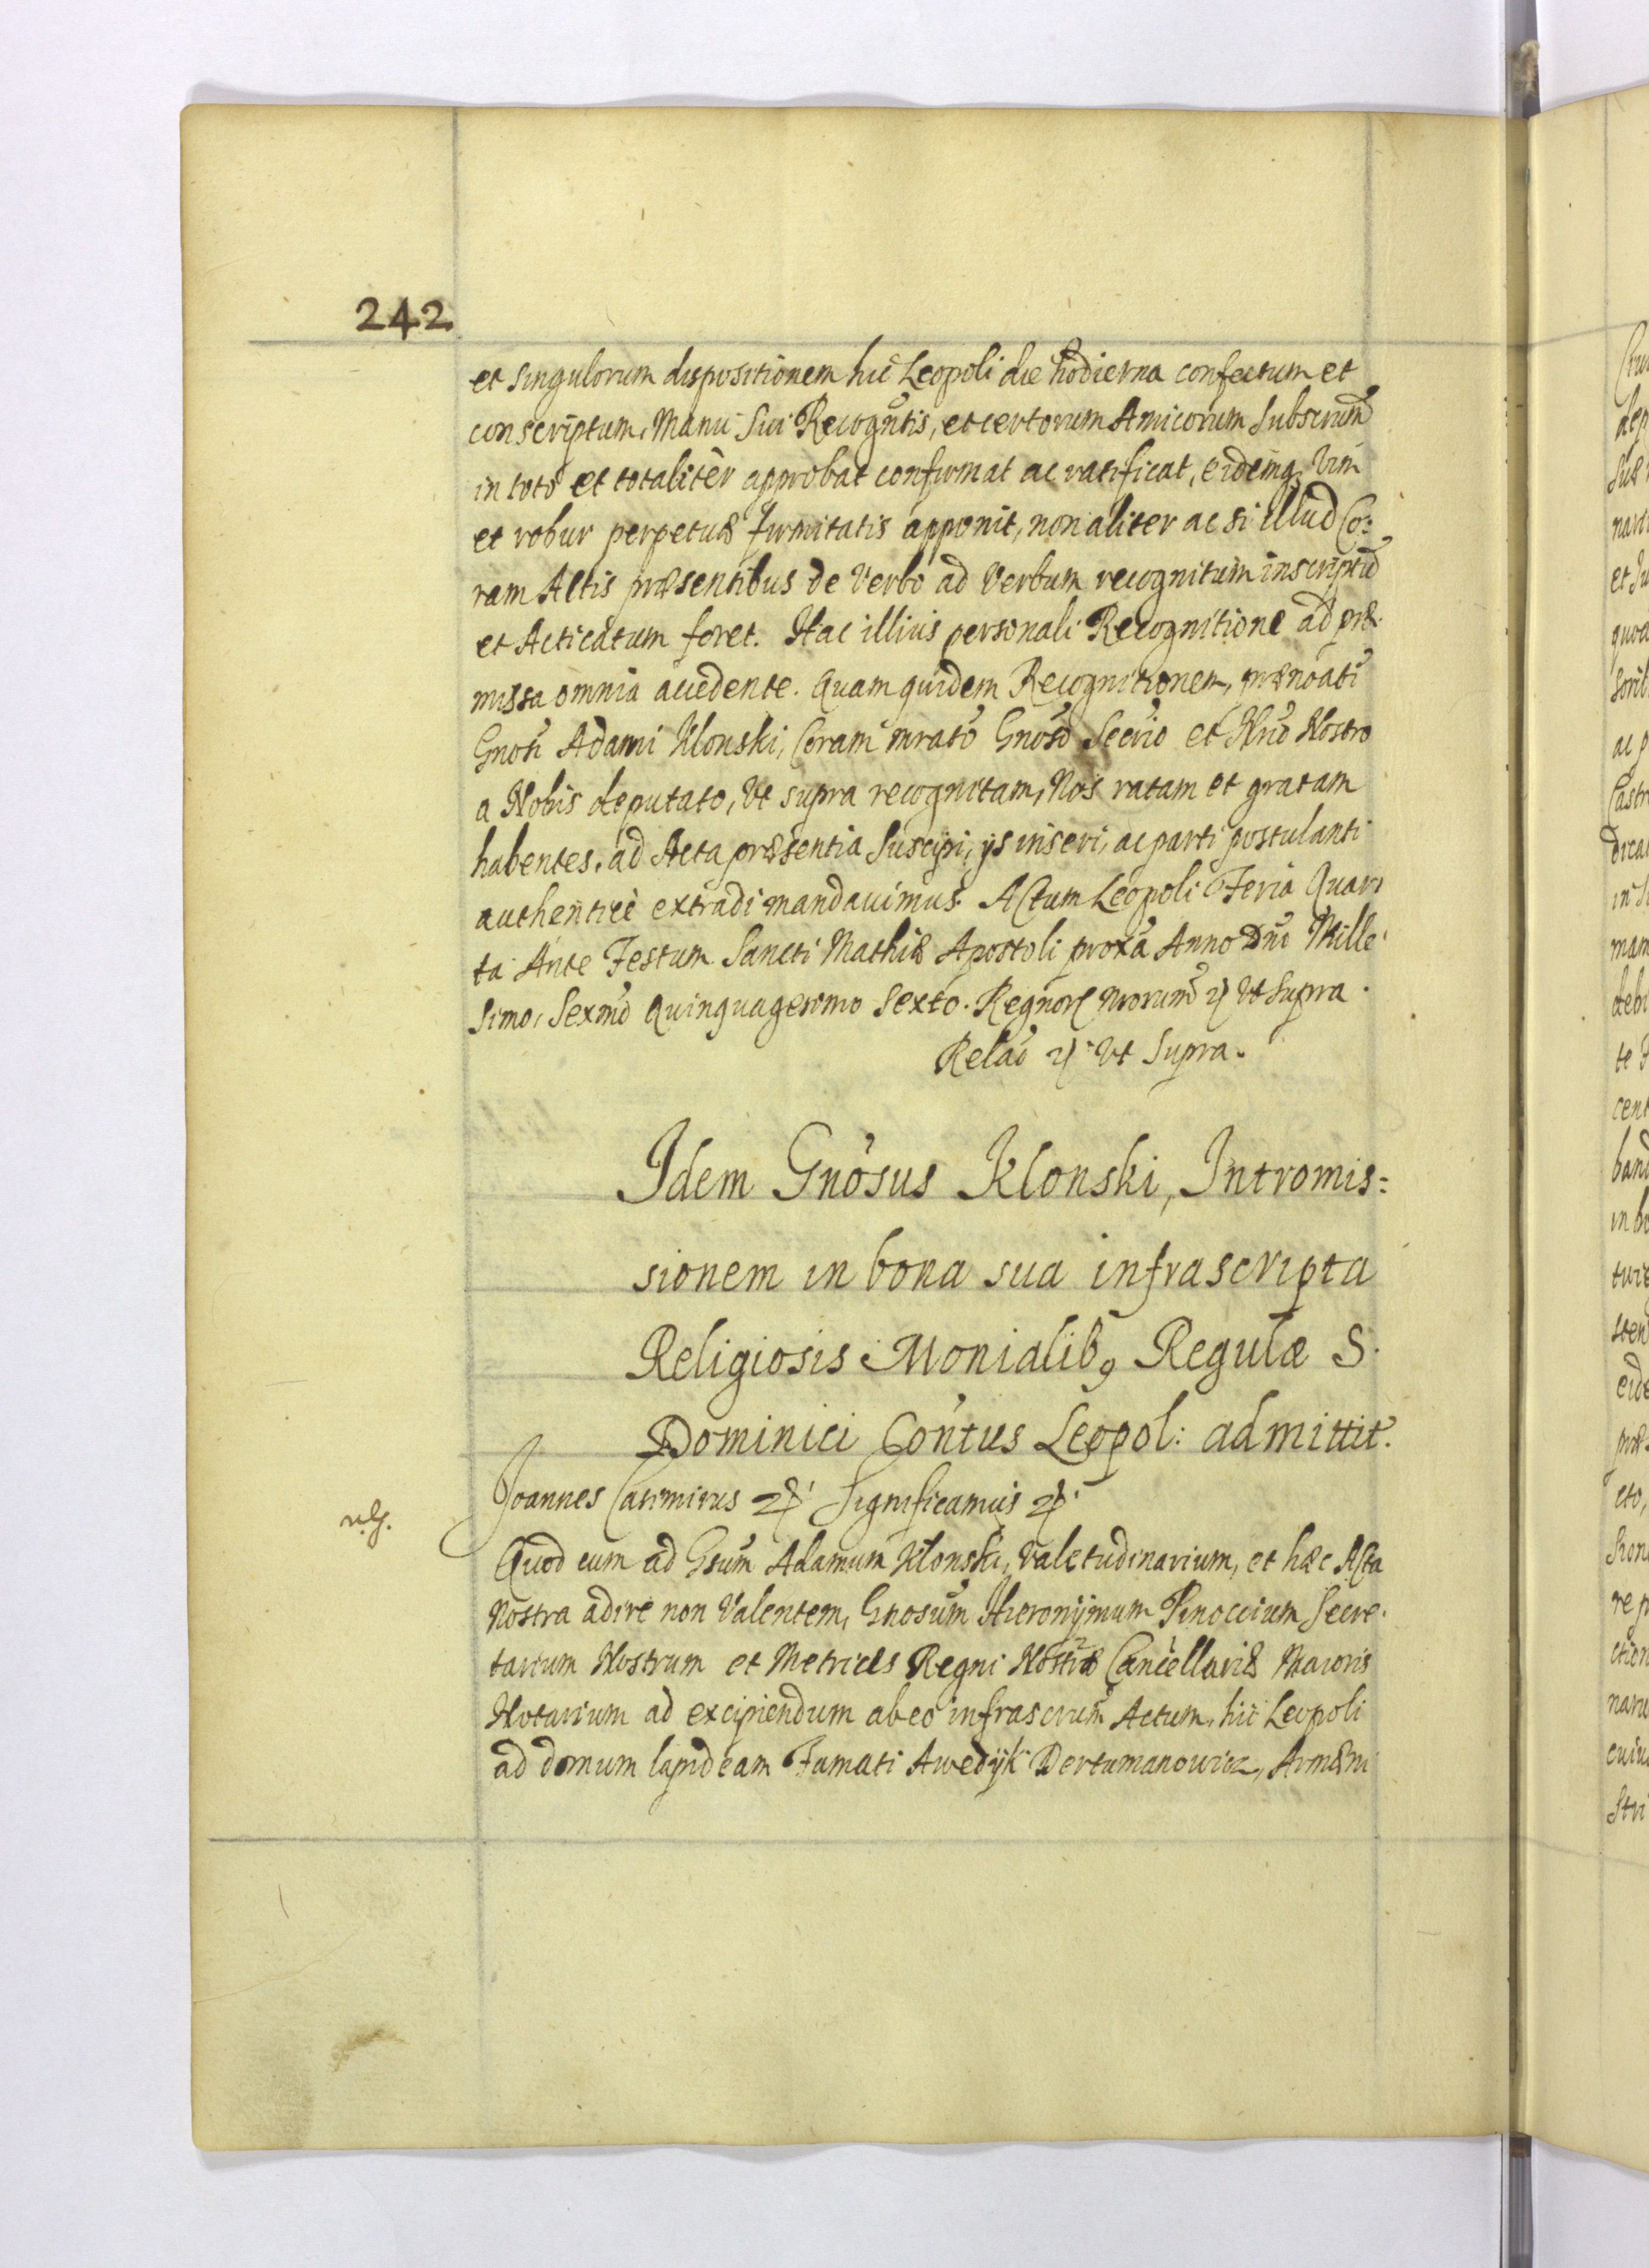 242
et singulorum dispositionem hic Leopoli die hodierna confectum et
conscriptum, Manu Sui Recogñtis, et certorum Amicorum Subscrum
in toto et totaliter approbat confirmat ac ratificat, eidemq, Vim
et robur perpetuæ firmitatis apponit, non aliter ac si illud Co:
ram Actis præsentibus de Verbo ad Verbum recognitum inscriptū
et Acticatum foret. Hac illius personali Recognitione ad præ
missa omnia accedente. Quam quidem Recognitionem, prænoati
Gnosi Adami Klonski, Coram mrato Gnoso Secrio et Nrio Nostro
a Nobis deputato, Vt supra recognitam, Nos ratam et gratam
habentes, ad Acta præsentia Suscipi, ijs inseri, ac parti postulanti
authenticè extradi mandauimus. Actum Leopoli Feria Quar
ta Ante Festum Sancti Mathiæ Apostoli proxa Anno Dni Mille
simo, Sexmo Quinquagesimo Sexto. Regnor nrorum ꝛ Vt Supra.
Relao ꝛ Vt Supra.
Idem Gnosus Klonski, Intromis=
sionem in bona sua infrascripta
Religiosis Monialibꝰ Regulæ S.
Dominici Contus Leopol: admittit.
Joannes Casimirus ꝛ Significamus ꝛ
Quod cum ad Gsum Adamum Klonski, Valetudinarium, et hæc Acta
Nostra adire non Valentem, Gnosum Hieronijmum Pinoccium Secre
tarium Nostrum et Metrices Regni Nostræ Cancellariæ Maioris
Notarium ad excipiendum ab eo infrascrum Actum, hic Leopoli
ad domum lapideam Famati Awedijk Dertumanowicz, Armæni